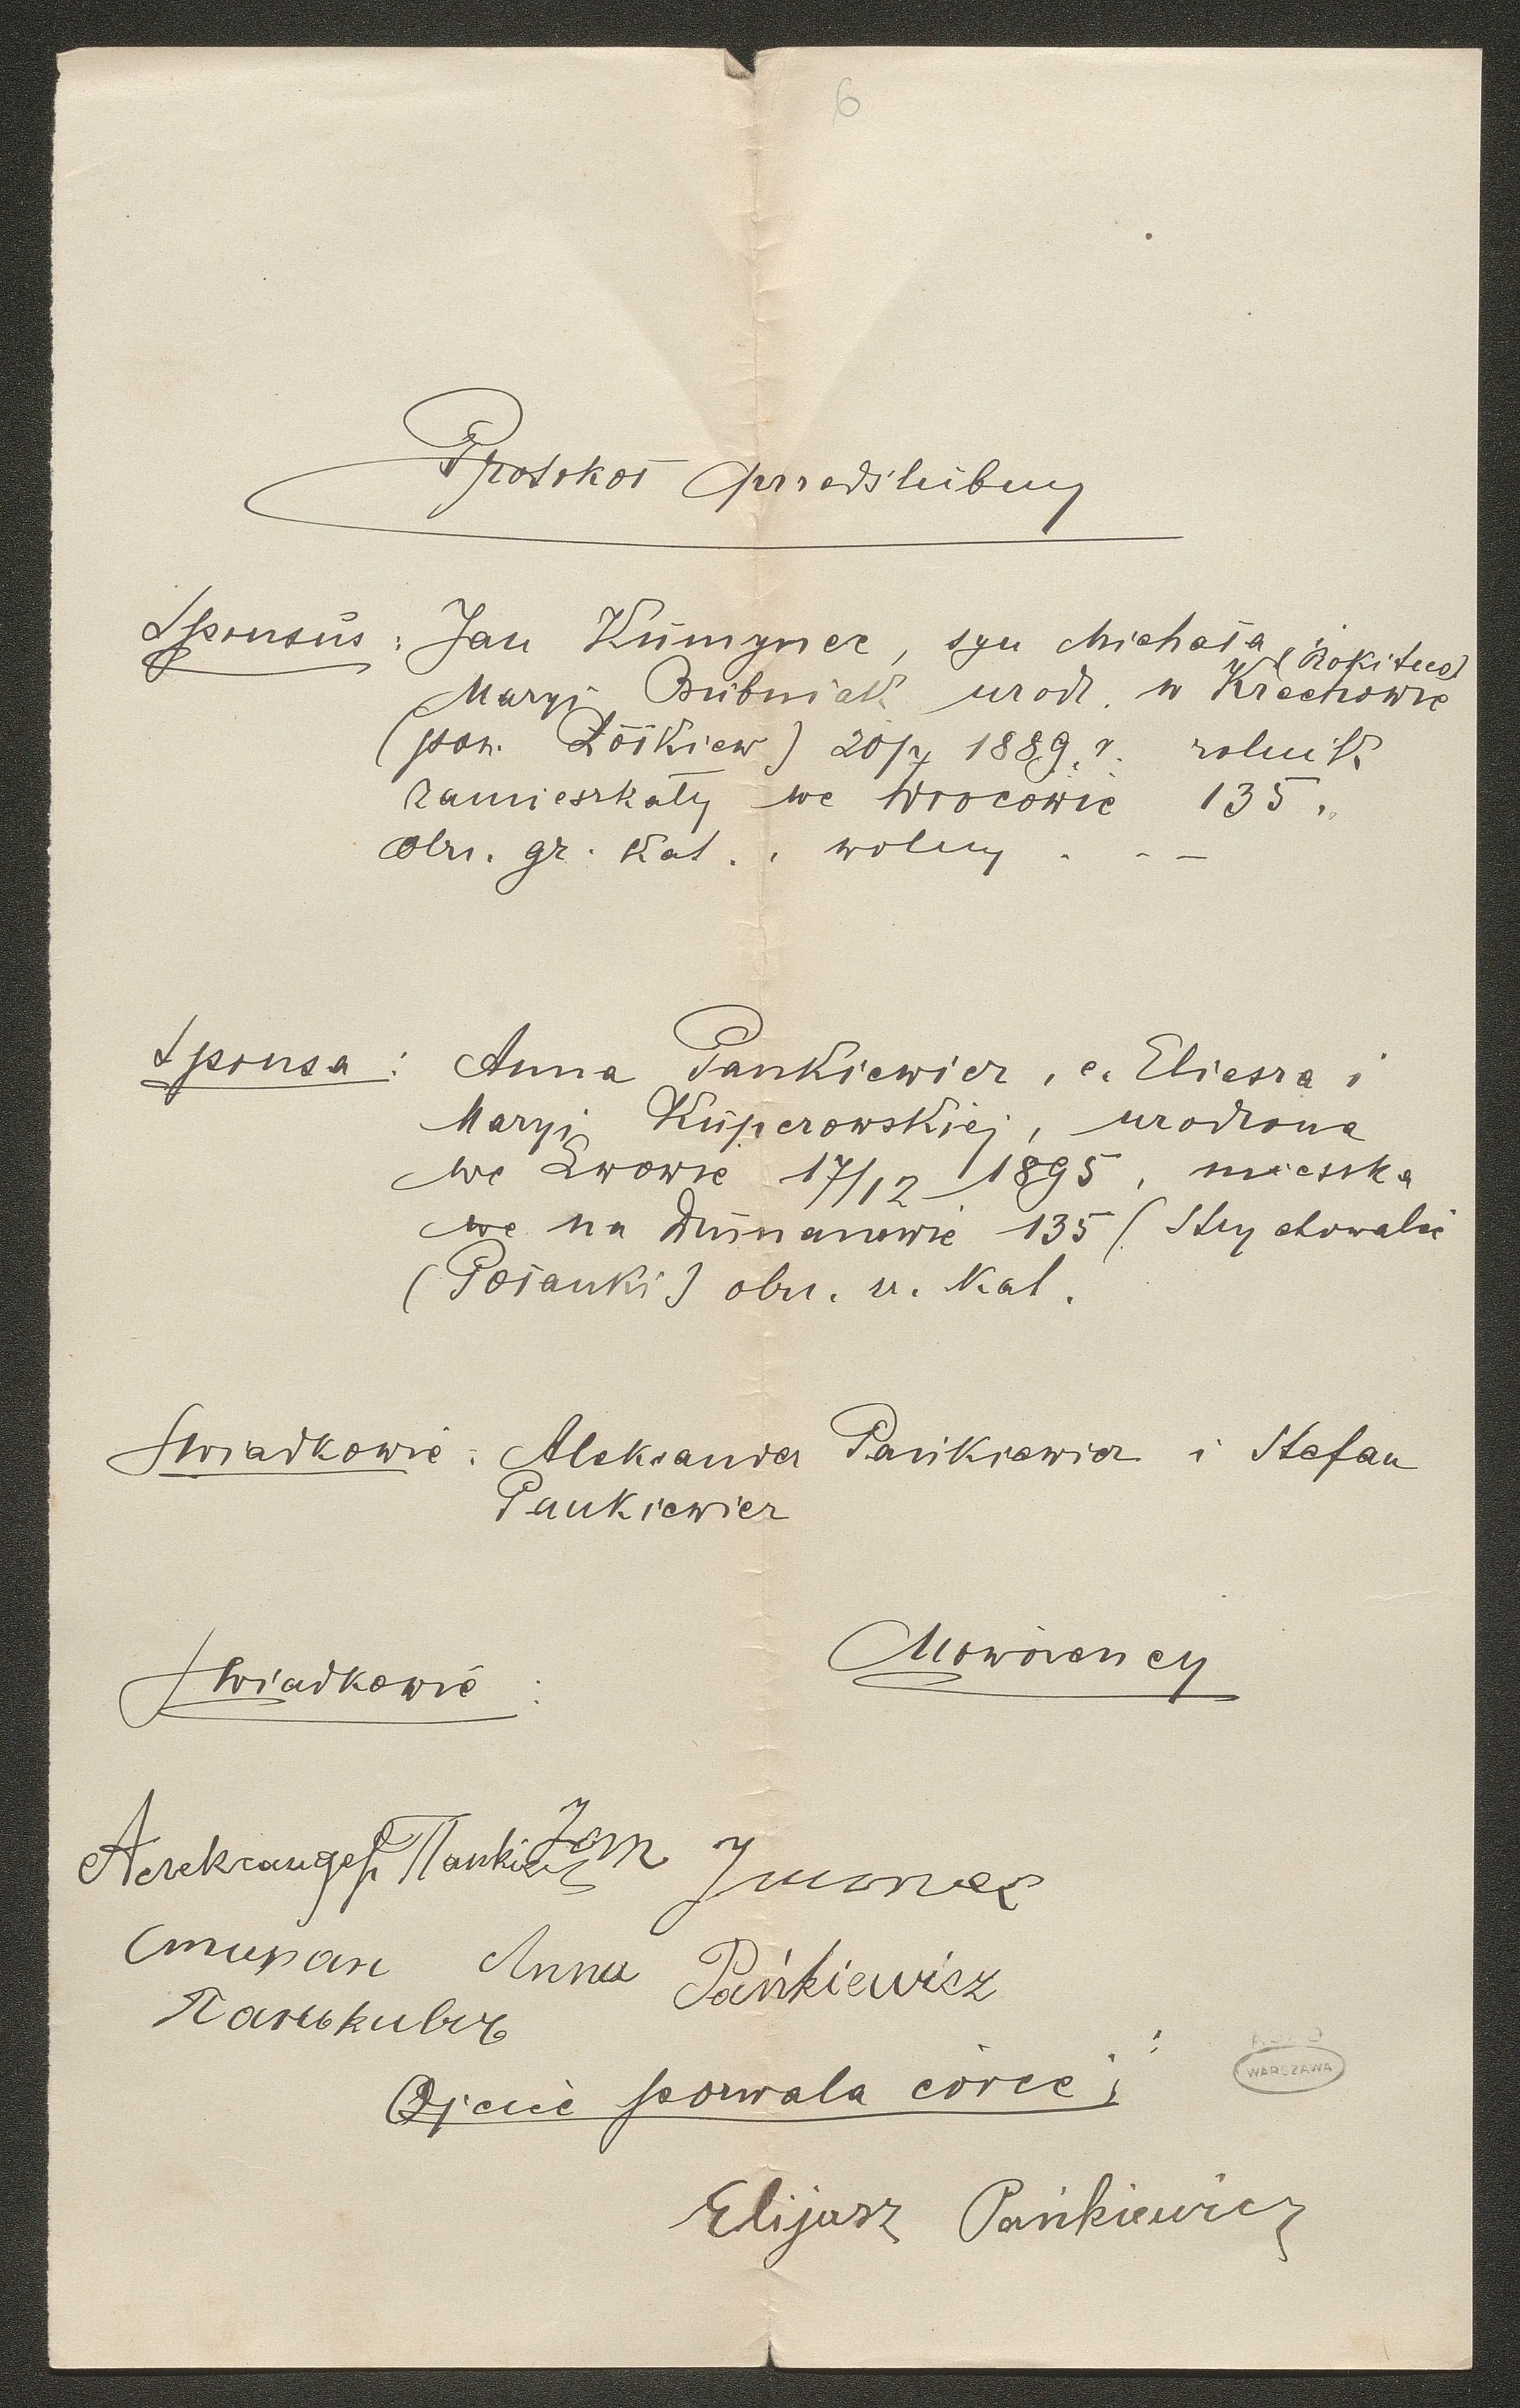 6
Protokół przedślubny
Sponsus : Jan Kumynec, syn Michała i
(Rokitna)
Maryi Bubniak urodz. w Krechowie
(pow. Żółkiew) 20/7 1889. r. rolnik
zamieszkały we Wrocowie 135.
obrz. gr. kat. . wolny . - —
Sponsa : Anna Pankiewicz, c. Eliasza i
Maryi Kuperowskiej, urodzona
we Lwowie 17/12 1895, mieszka
we na 135 (
(Polanki) obrz. rz. kat.
Świadkowie : Aleksander Pańkiewicz i Stefan
Pankiewicz
Nowożeńcy
Świadkowie :
Александер Панкіевич Jan
Anna Pańkiewicz
Панькивичъ
WARSZAWA
Ojciec pozwala córce :
Elijasz Pańkiewicz